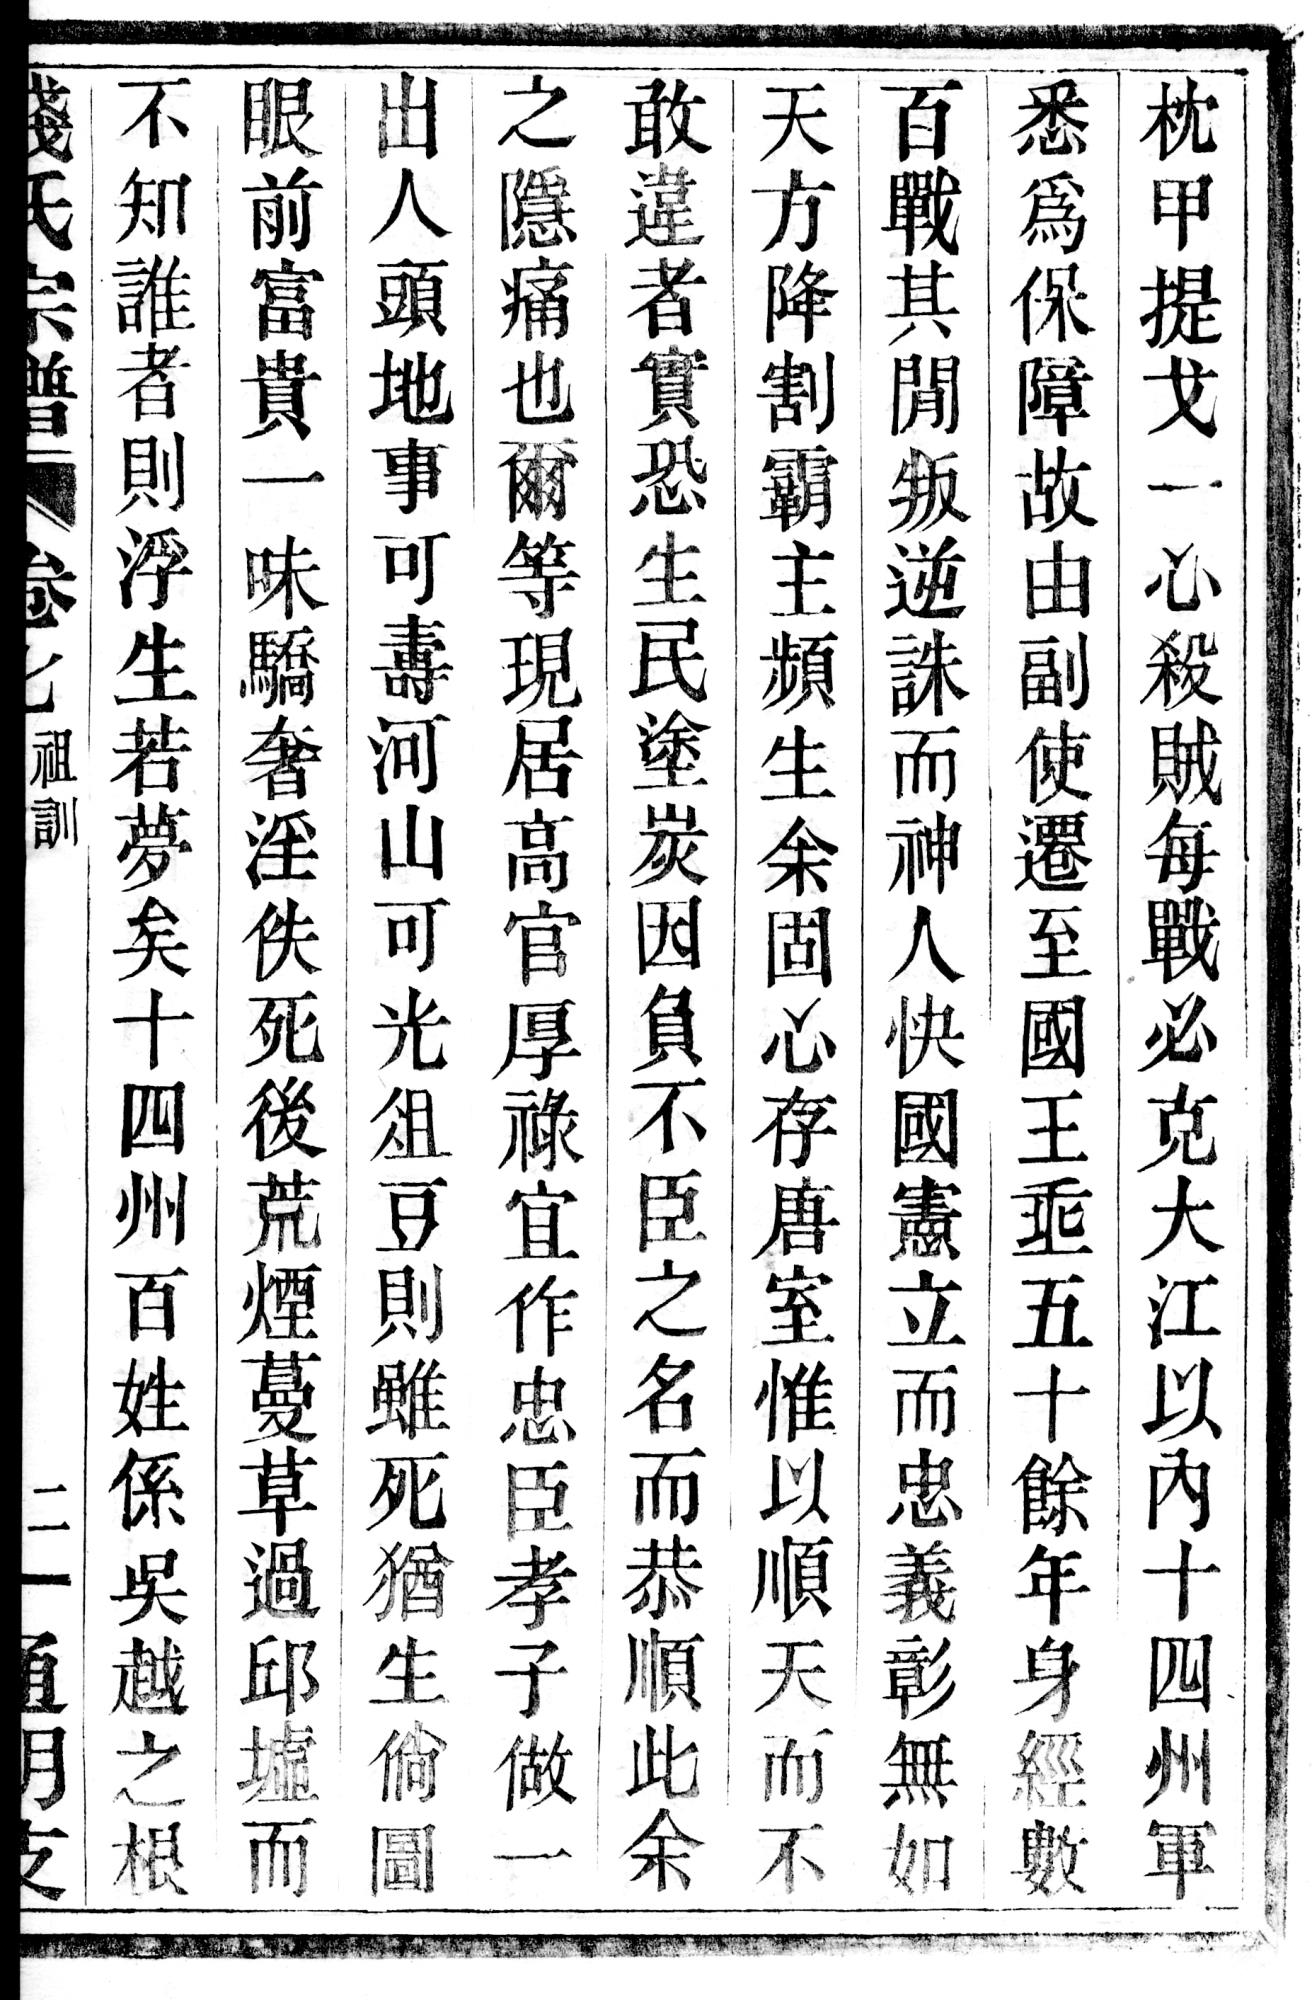 枕甲提戈一心殺賊每戰必克大江以內十四州軍
悉爲保障故由副使遷至國王垂五十餘年身經數
百戰其閒叛逆誅而神人快國憲立而忠義彰無如
天方降割霸主頻生余固心存唐室惟以順天而不
敢違者實恐生民塗炭因負不臣之名而恭順此余
之隱痛也爾等現居高官厚祿宜作忠臣孝子做一
出人頭地事可壽河山可光俎豆則雖死猶生倘圖
眼前富貴一味驕奢淫佚死後荒煙蔓草過邱墟而
不知誰者則浮生若夢矣十四州百姓係吳越之根
錢氏宗譜 卷七 祖訓 二 通明支